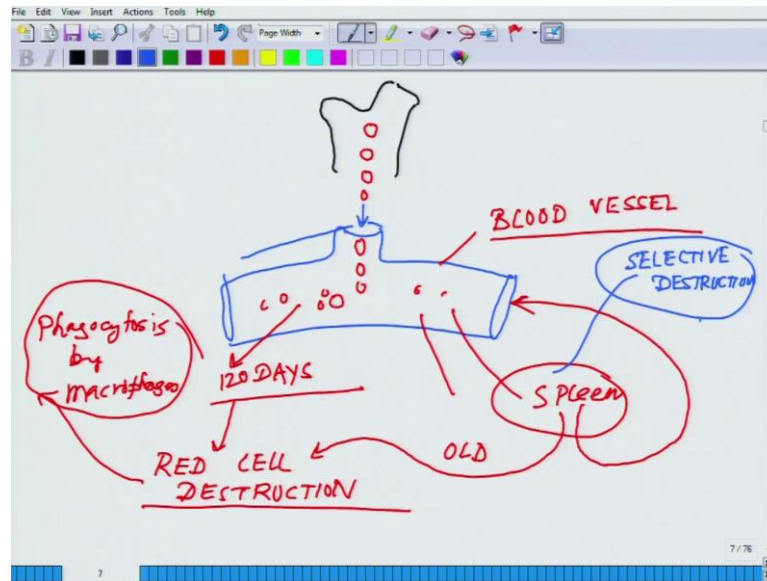 File Edit View Insert Actions Tools Help
Page Width
B I
BLOOD VESSEL
SELECTIVE
DESTRUCTION
Phagocytosis
by
macrophages
120 DAYS
SPleen
OLD
RED CELL
DESTRUCTION
7 / 76
7